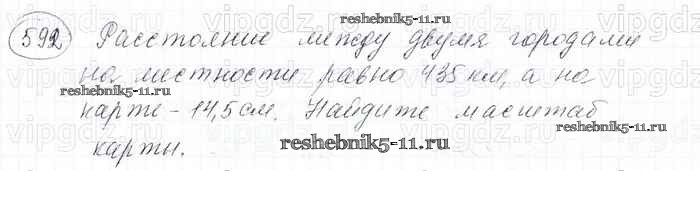 592 Расстояние между двумя городами
на местности равно 435 км, а на
карте - 14,5 см. Найдите масштаб
карты.
reshebnik5-11.ru
reshebnik5-11.ru
reshebnik5-11.ru
reshebnik5-11.ru
vipgdz.ru